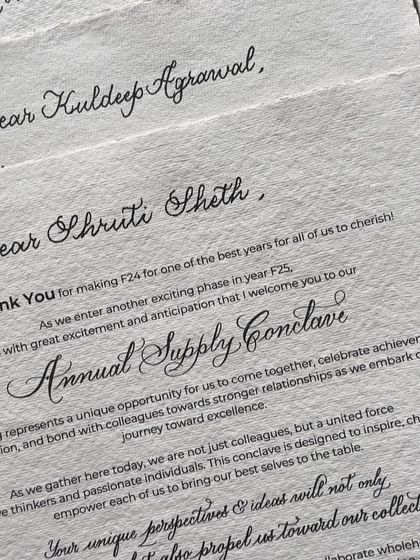 ear Kuldeep Agrawal,
ear Shruti Sheth,
nk You for making F24 for one of the best years for all of us to cherish!
As we enter another exciting phase in year F25,
with great excitement and anticipation that I welcome you to our
Annual Supply Conclave
g represents a unique opportunity for us to come together, celebrate achievem
ion, and bond with colleagues towards stronger relationships as we embark o
journey toward excellence.
As we gather here today, we are not just colleagues, but a united force
e thinkers and passionate individuals. This conclave is designed to inspire, ch
empower each of us to bring our best selves to the table.
Your unique perspectives & ideas will not only,
t also propel us toward our collect
llaborate wholeh